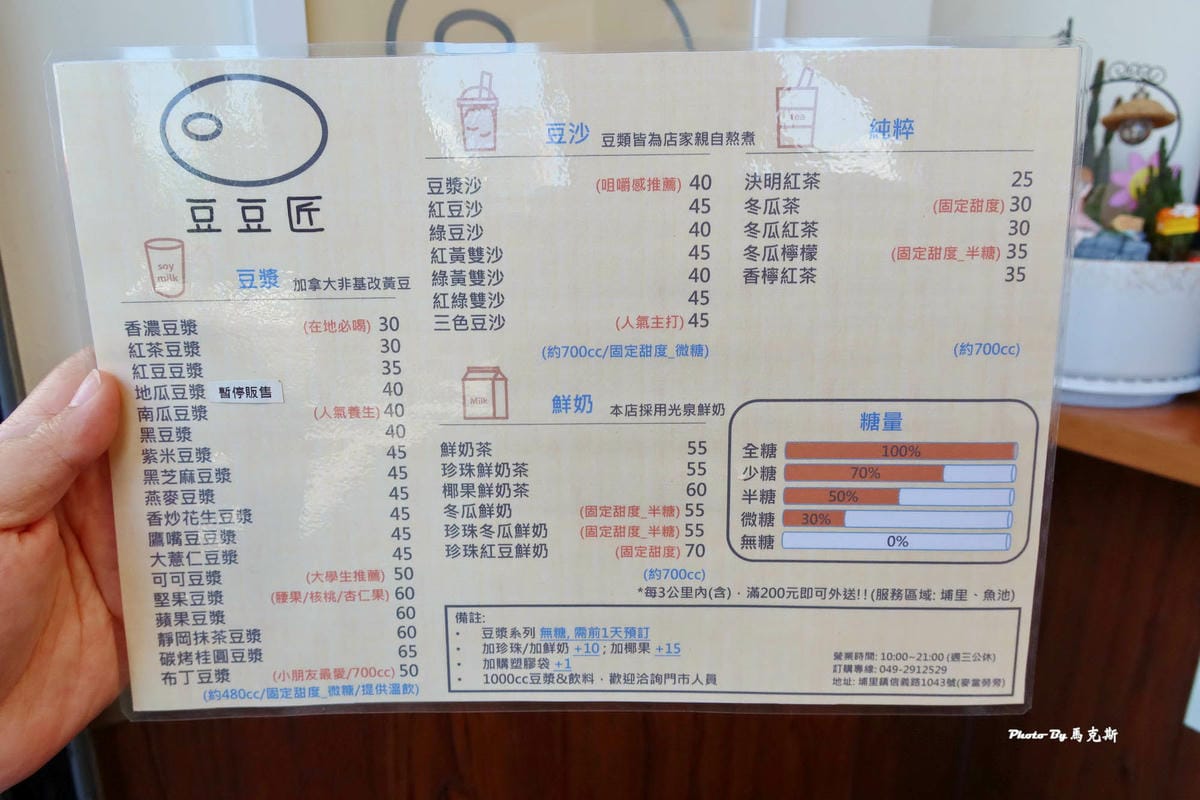 豆豆匠
soy milk
豆漿 加拿大非基改黃豆
香濃豆漿 (在地必喝) 30
紅茶豆漿 30
紅豆豆漿 35
地瓜豆漿 暫停販售 40
南瓜豆漿 (人氣養生) 40
黑豆漿 40
紫米豆漿 45
黑芝麻豆漿 45
燕麥豆漿 45
香炒花生豆漿 45
鷹嘴豆豆漿 45
大薏仁豆漿 45
可可豆漿 (大學生推薦) 50
堅果豆漿 (腰果/核桃/杏仁果) 60
蘋果豆漿 60
靜岡抹茶豆漿 60
碳烤桂圓豆漿 65
布丁豆漿 (小朋友最愛/700cc) 50
(約480cc/固定甜度_微糖/提供溫飲)
豆沙 豆類皆為店家親自熬煮
豆漿沙 (咀嚼感推薦) 40
紅豆沙 45
綠豆沙 40
紅黃雙沙 45
綠黃雙沙 40
紅綠雙沙 45
三色豆沙 (人氣主打) 45
(約700cc/固定甜度_微糖)
Milk
鮮奶 本店採用光泉鮮奶
鮮奶茶 55
珍珠鮮奶茶 55
椰果鮮奶茶 60
冬瓜鮮奶 (固定甜度_半糖) 55
珍珠冬瓜鮮奶 (固定甜度_半糖) 55
珍珠紅豆鮮奶 (固定甜度) 70
(約700cc)
tea
純粹
決明紅茶 25
冬瓜茶 (固定甜度) 30
冬瓜紅茶 30
冬瓜檸檬 (固定甜度_半糖) 35
香檸紅茶 35
(約700cc)
糖量
全糖 100%
少糖 70%
半糖 50%
微糖 30%
無糖 0%
*每3公里內(含)，滿200元即可外送!! (服務區域: 埔里、魚池)
備註:
• 豆漿系列 無糖, 需前1天預訂
• 加珍珠/加鮮奶 +10 ; 加椰果 +15
• 加購塑膠袋 +1
• 1000cc豆漿&飲料，歡迎洽詢門市人員
營業時間: 10:00~21:00 (週三公休)
訂購專線: 049-2912529
地址: 埔里鎮信義路1043號(麥當勞旁)
Photo By 馬克斯